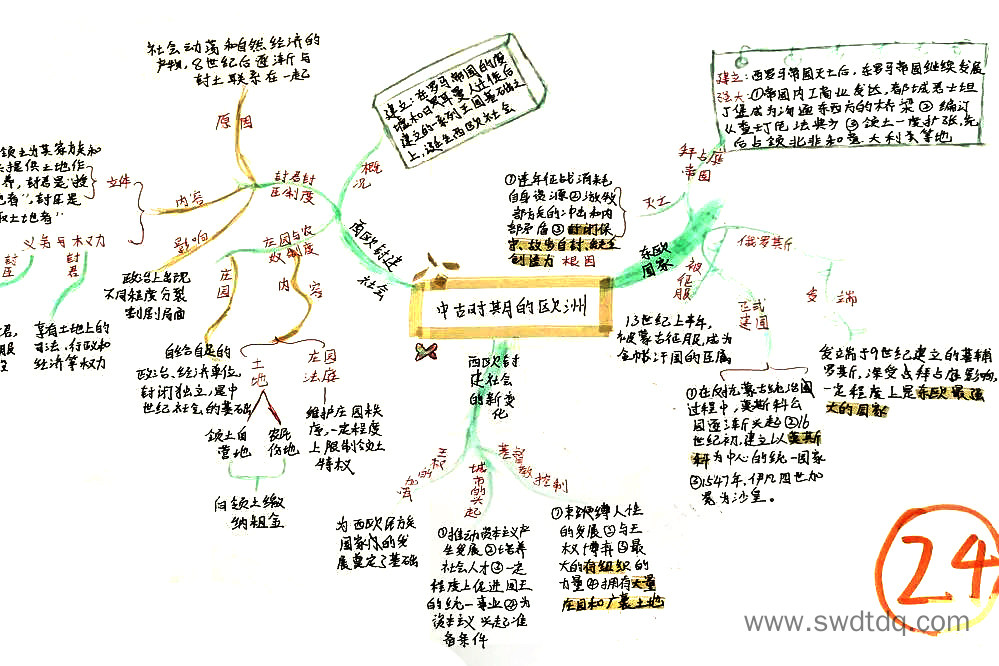 中古时期的欧洲
西欧封建
社会
概况
建立：在罗马帝国的废
墟和日耳曼人迁徙后
建立的一系列王国基础之
上，诞生西欧社会
封君封
臣制度
原因
社会动荡和自然经济的
产物，8世纪后逐渐与
封土联系在一起
内容
主体
领主为某客力大和
提供土地作
养，封君是"授
地者"，封臣是
取土地者"
义务与权力
封臣
封君
享有土地上的
司法、行政和
经济等权力
影响
政治上出现
不同程度分裂
割剧局面
庄园与农
奴制度
庄园
自给自足的
政治、经济单位，
封闭独立，是中
世纪社会的基础
内容
土地
领主自
营地
农民
份地
向领主缴
纳租金
庄园
法庭
维护庄园秩
序，一定程度
上限制领主
特权
东欧
国家
拜占庭
帝国
建立：西罗马帝国灭亡后，东罗马帝国继续发展
强大：①帝国内工商业发达，都城君士坦
丁堡成为沟通东西方的桥梁②编订
《查士丁尼法典》③领土一度扩张，先
后占领北非和意大利等地
灭亡
①连年征战消耗
自身资源②游牧
部族的冲击和内
部矛盾③封闭保
守、故步自封、缺乏
创造力 根因
俄罗斯
被征服
13世纪上半年，
被蒙古征服，成为
金帐汗国的臣属
正式
建国
①在反抗蒙古统治的
过程中，莫斯科公
国逐渐兴起②16
世纪初，建立以莫斯
科为中心的统一国家
③1547年，伊凡四世加
冕为沙皇。
发端
发立端于9世纪建立的基辅
罗斯，深受占拜占庭影响，
一定程度上是东欧最强
大的国家
西欧封
建社会
的新变
化
王权
的
加强
为西欧民族
国家的发
展奠定了基础
城市的兴起
①推动资本主义产
生发展②培养
社会人才③一定
程度上促进国王
的统一事业④为
资本主义兴起准
备条件
基督教控制
①束缚人性
的发展②与王
权博弈③最
大的有组织的
力量④拥有大量
庄园和广袤土地
24
www.swdtdq.com